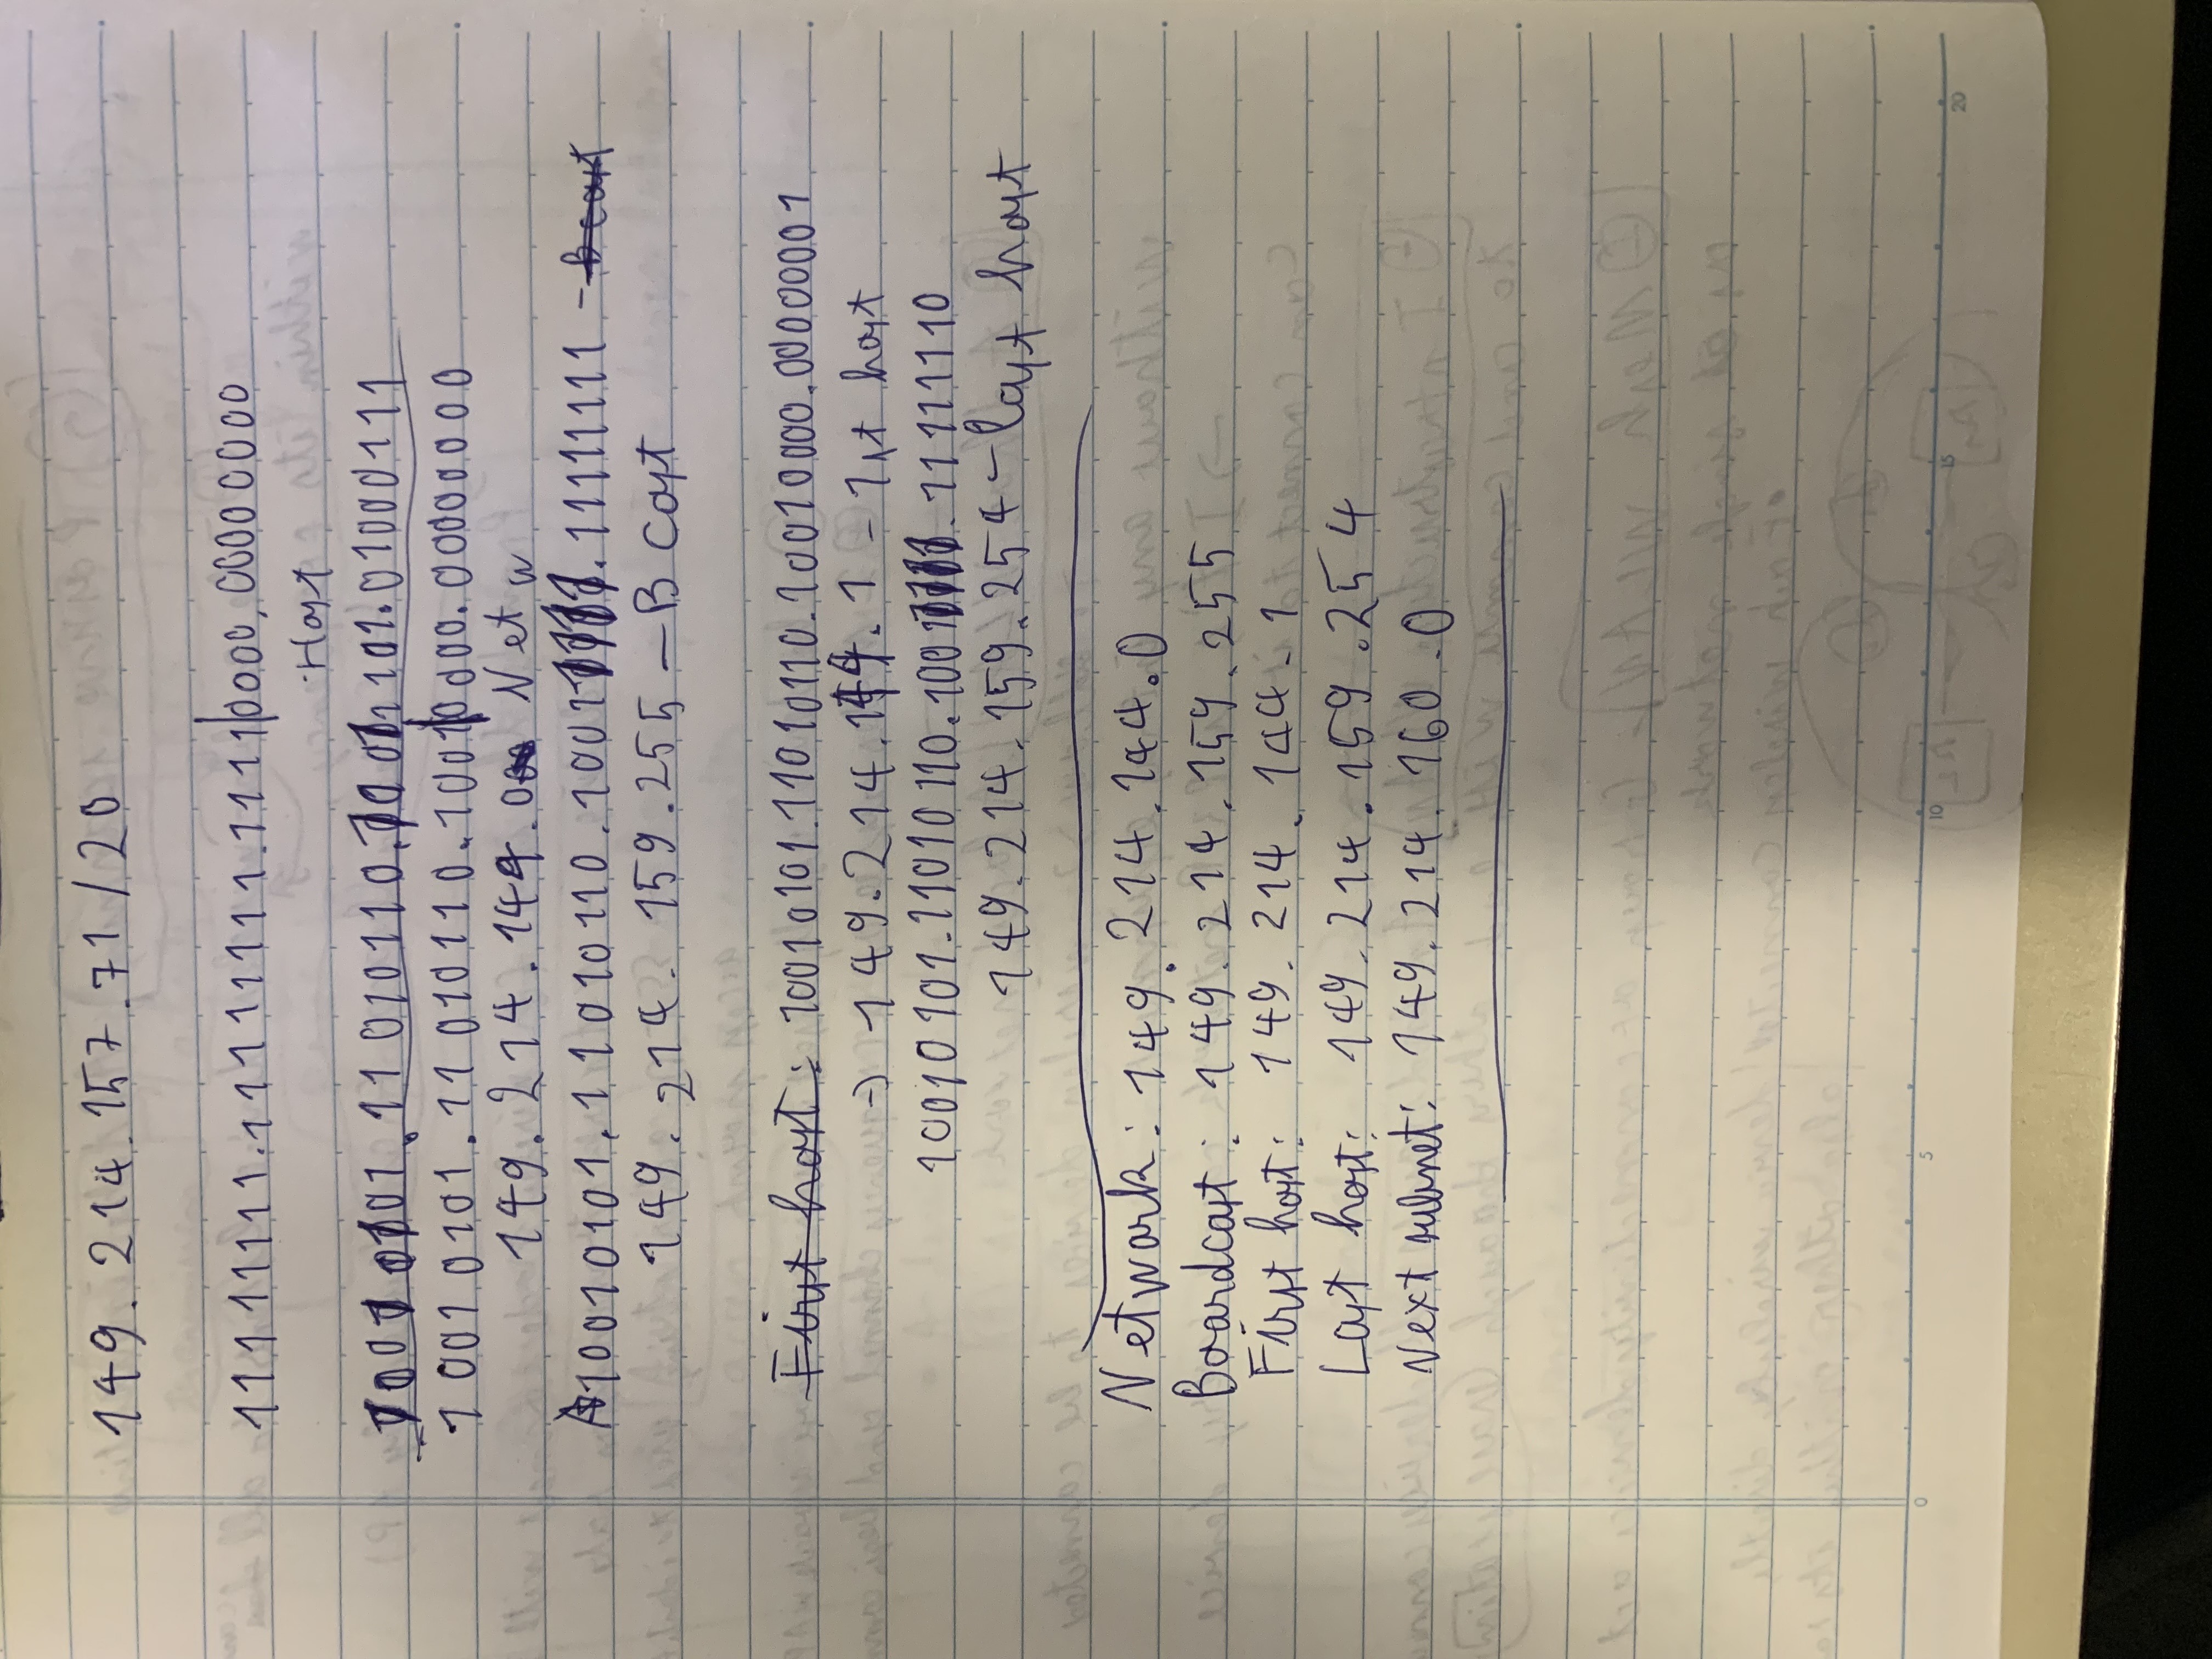 149. 214. 157. 71 / 20
11111111.11111111.1111|0000.00000000
Host
10010101.11010110.10011101.01000111
10010101.11010110.1001|0000.00000000
149. 214. 144. 0 Netw
10010101.11010110.10011111.11111111 - Bcast
149. 214. 159. 255 - B cast
First host: 10010101.11010110.10010000.00000001
→ 149. 214. 144. 1 - 1st host
10010101.11010110.10011111.11111110
149. 214. 159. 254 - last host
Network: 149. 214. 144. 0
Boardcast: 149. 214. 159. 255
First host: 149. 214. 144. 1
Last host: 149. 214. 159. 254
Next subnet: 149. 214. 160. 0
0 5 10 15 20